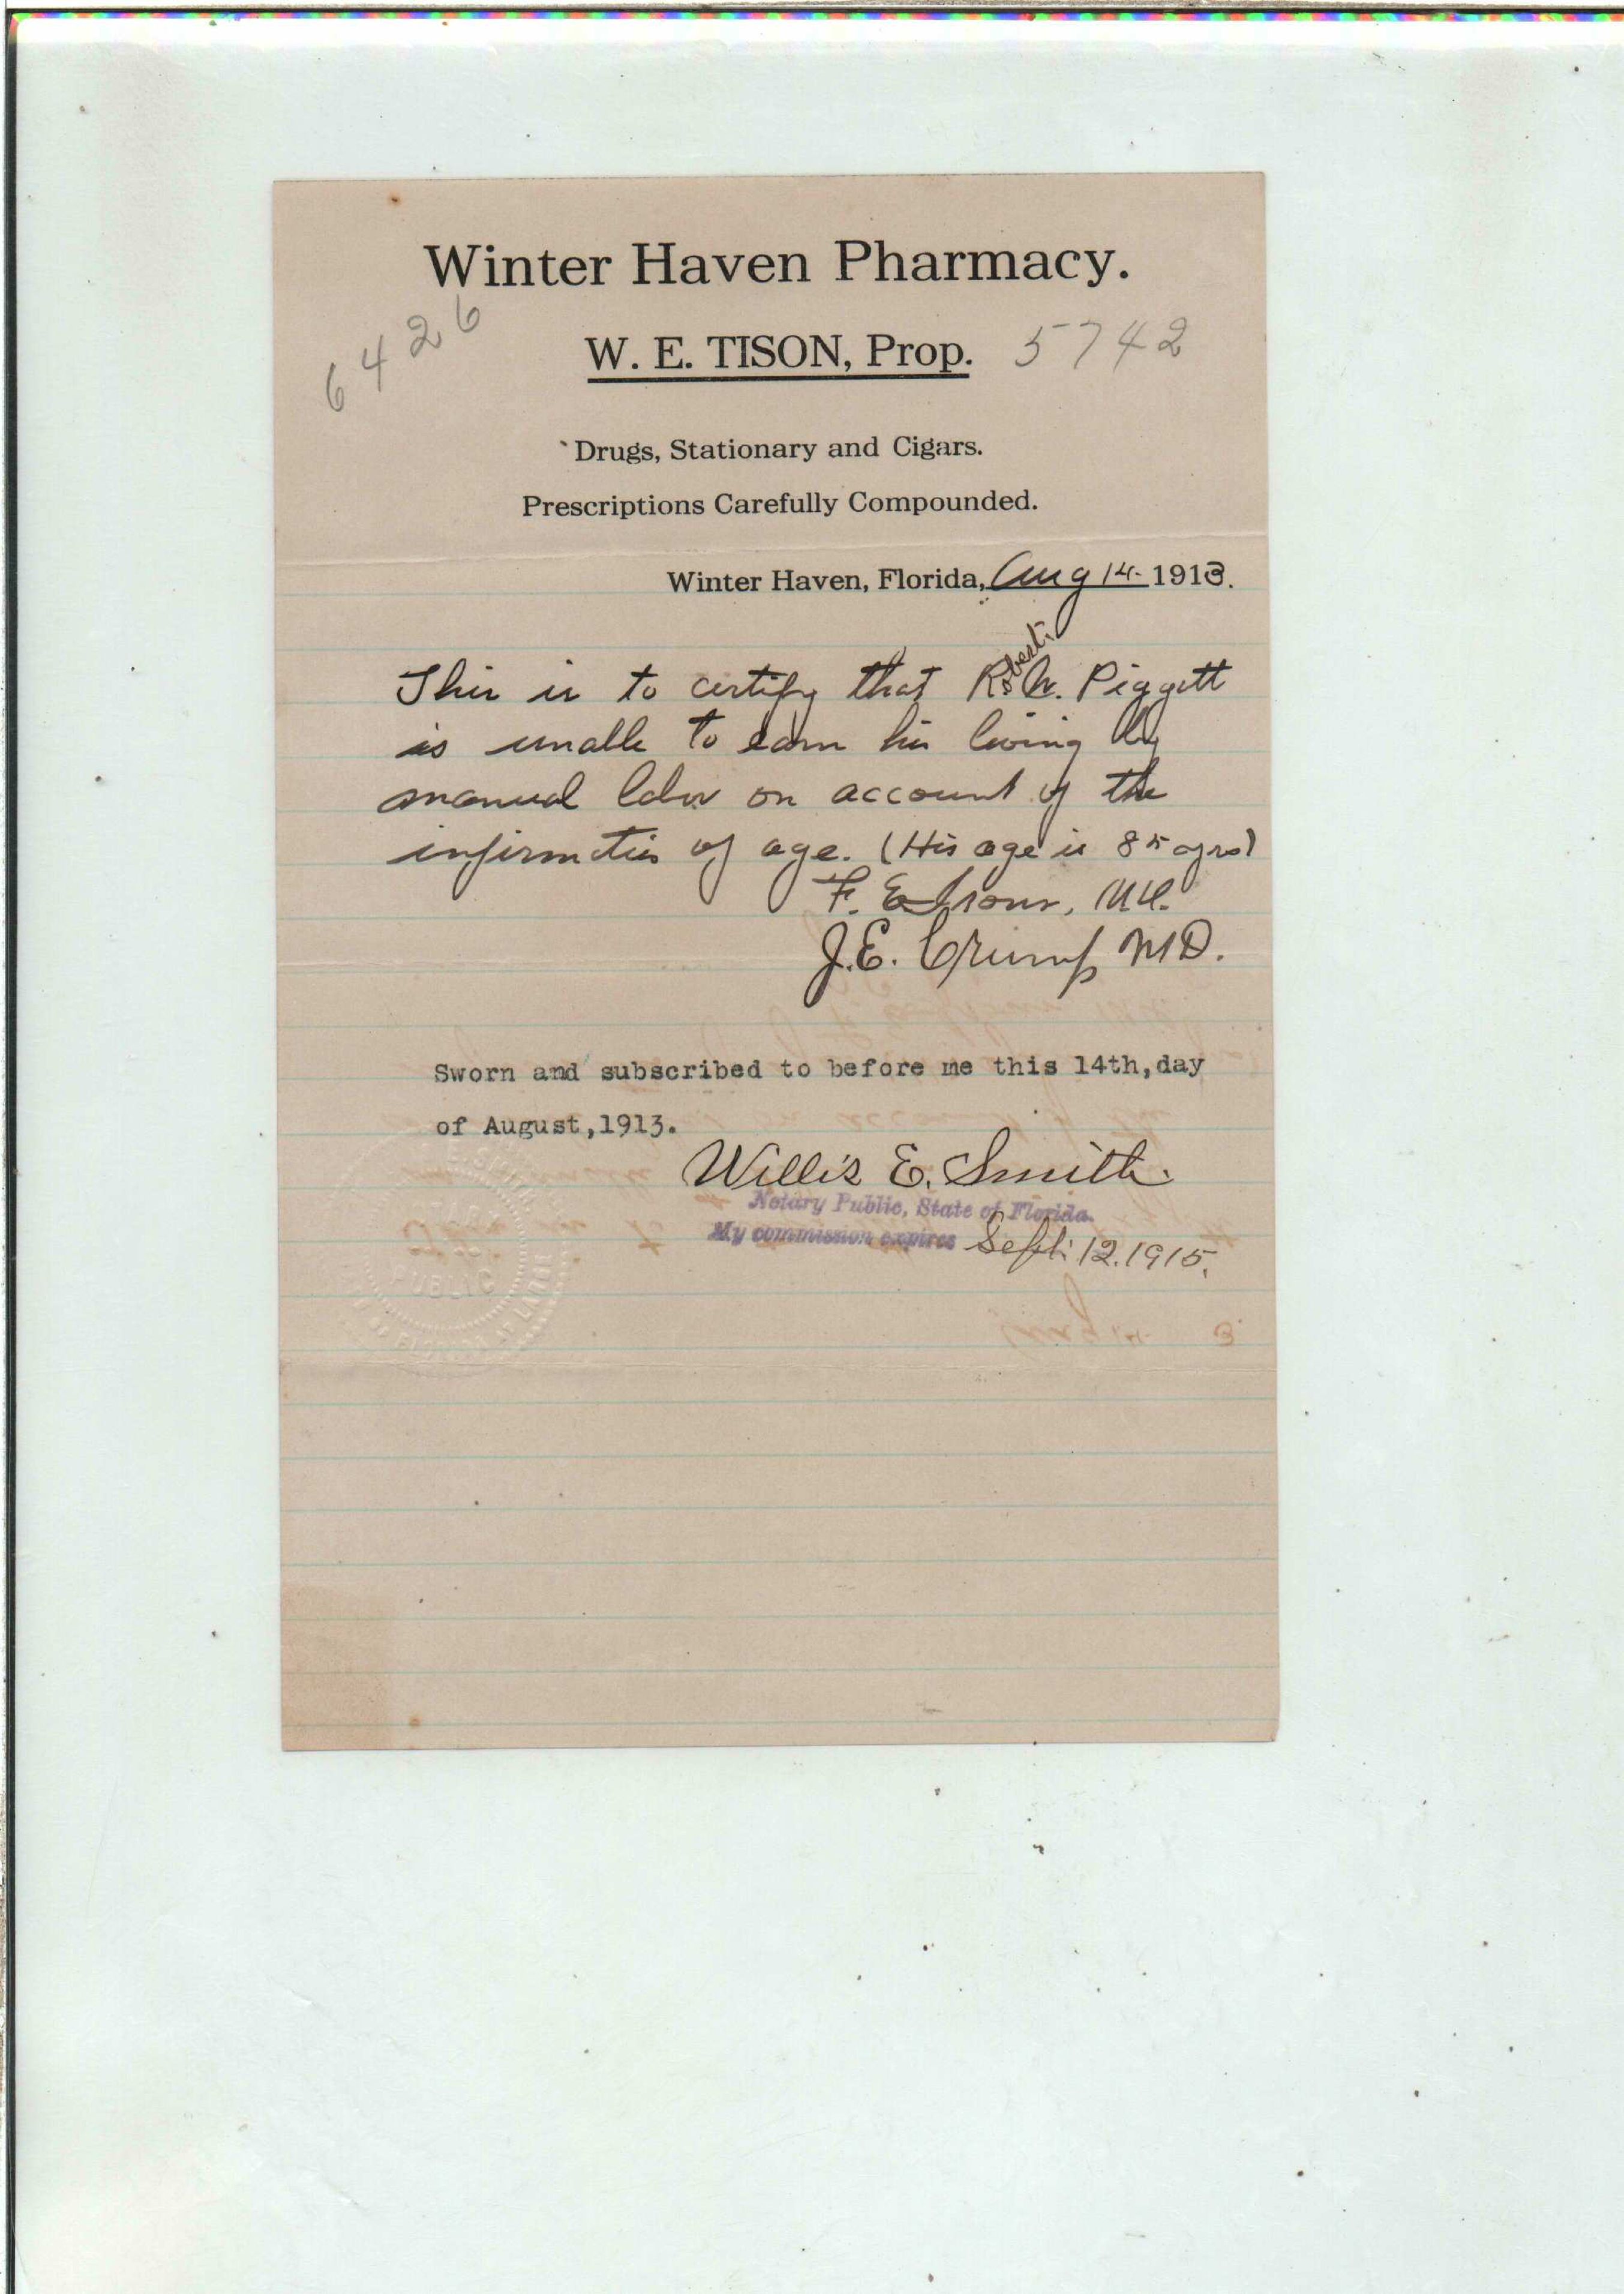 Winter Haven Pharmacy.
W. E. TISON, Prop.
6426
5742
Drugs, Stationary and Cigars.
Prescriptions Carefully Compounded.
Winter Haven, Florida, Aug 14 - 1913.
This is to certify that Robert W. Piggott
is unable to earn his living by
manual labor on account of the
infirmities of age. (His age is 85 yrs)
F. E. M.D.
J.E. Crump M.D.
Sworn and subscribed to before me this 14th, day
of August, 1913.
Willis E. Smith
Notary Public, State of Florida.
My commission expires Sept. 12. 1915.